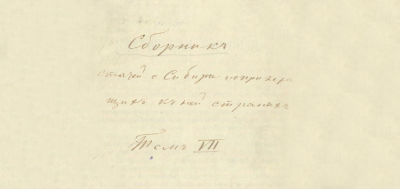 Сборникъ
статей о Сибири и прилежа
щихъ къ ней странахъ
Томъ VII